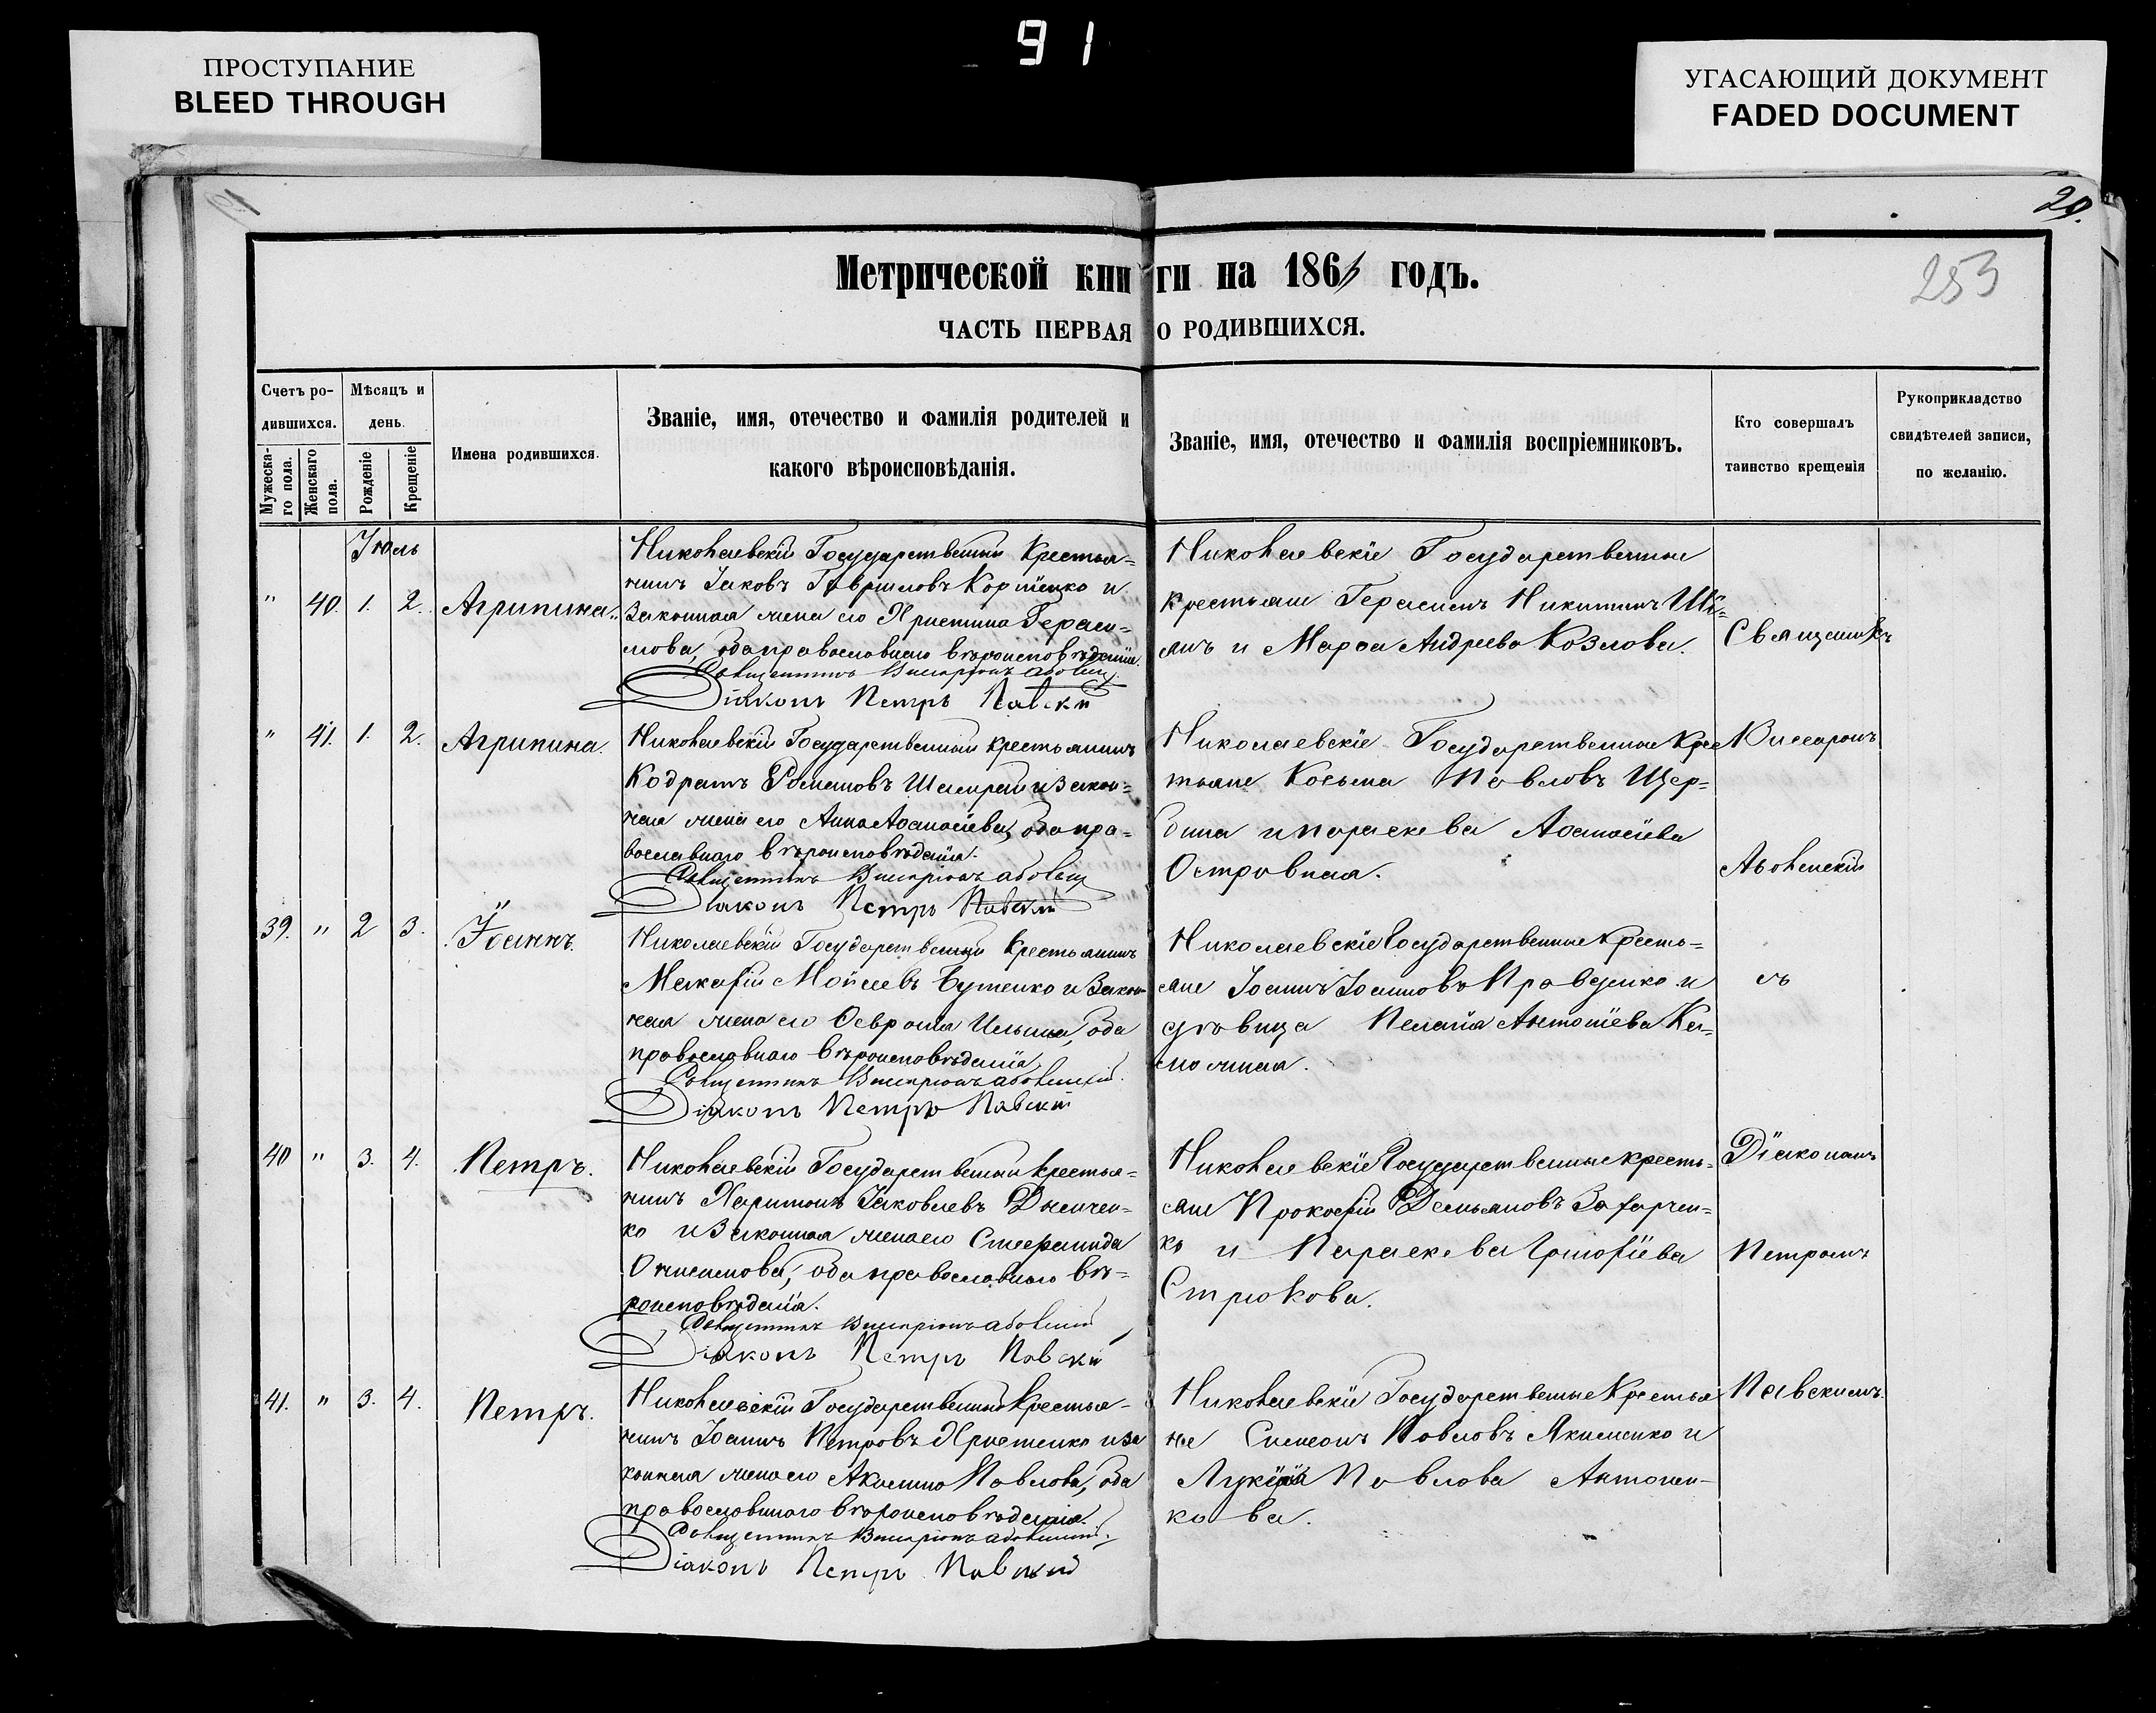 91
ПРОСТУПАНИЕ
BLEED THROUGH
УГАСАЮЩИЙ ДОКУМЕНТ
FADED DOCUMENT
29.
253
Метрической книги на 186 годъ.
ЧАСТЬ ПЕРВАЯ О РОДИВШИХСЯ.
Счетъ ро-
дившихся.
Мужеска-
го пола.
Женскаго
пола.
Мѣсяцъ и
день.
Рожденіе
Крещеніе
Имена родившихся.
Званіе, имя, отечество и фамилія родителей и
какого вѣроисповѣданія.
Званіе, имя, отечество и фамилія воспріемниковъ.
Кто совершалъ
таинство крещенія
Рукоприкладство
свидѣтелей записи,
по желанію.
Іюль
" 40. 1. 2. Агрипина.
Николаевскій Государственный крестья=
нинъ Іаковъ Гавриловъ Корніенко и
законная жена его Христина Гераси=
мова, оба православнаго вѣроисповѣданія.
Священникъ Виссаріонъ
Діаконъ Петръ Павскій
Николаевскіе Государственные
крестьяне Герасимъ Никитинъ
и Марѳа Андреева Козлова.
Священникъ
" 41. 1. 2. Агрипина.
Николаевскій Государственный крестьянинъ
Кодратъ Романовъ и закон=
ная жена его Анна Аѳанасіева, оба пра=
вославнаго вѣроисповѣданія.
Священникъ Виссаріонъ
Діаконъ Петръ Павскій
Николаевскіе Государственные крес
тьяне Косьма Павловъ Щер=
бина и Параскева Аѳанасіева
Островная.
Виссаріонъ
39. " 2 3. Іоаннъ.
Николаевскій Государственный крестьянинъ
Макарій Моисеевъ Бутенко и закон
ная жена его Ѳевронія Ильина, оба
православнаго вѣроисповѣданія
Священникъ Виссаріонъ
Діаконъ Петръ Павскій
Николаевскіе Государственные кресть=
яне Іоаннъ Іоанновъ и
дѣвица Пелагія Антоніева Ка=
съ
40 " 3. 4. Петръ.
Николаевскій Государственный крестья=
нинъ Харитонъ Іаковлевъ
ко и законная жена его Стефанида
Онисимова, оба православнаго вѣ=
роисповѣданія.
Священникъ Виссаріонъ
Діаконъ Петръ Павскій
Николаевскіе Государственные кресть=
яне Прокофій Демьяновъ Захарчен=
ко и Параскева
Стрюкова.
Діакономъ
Петромъ
41. " 3. 4. Петръ.
Николаевскій Государственный крестья=
нинъ Іоаннъ Петровъ Христенко и за
конная жена его Акилина Павлова, оба
православнаго вѣроисповѣданія.
Священникъ Виссаріонъ
Діаконъ Петръ Павскій
Николаевскіе Государственные крестья
не Симеонъ Павловъ Якименко и
Лукерія Павлова Антонен=
кова.
Павскимъ.